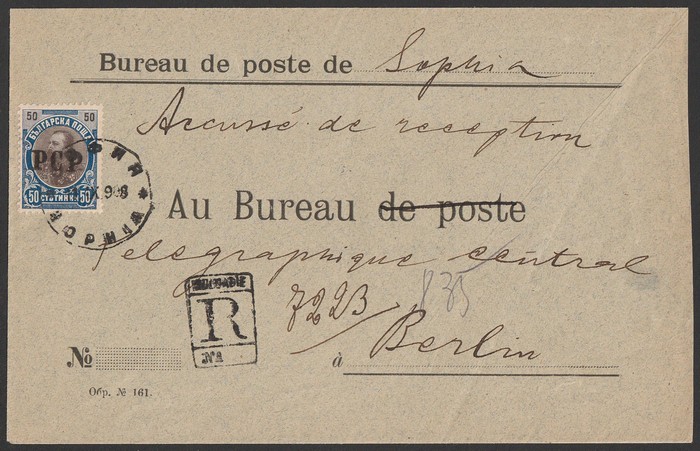 Bureau de poste de Sophia
Accussé de reception
50 50
БЪЛГАРСКА ПОЩА
РСР
50 СТОТИНКИ 50
Au Bureau de poste
Telegraphique central
R
№
7223
835
№
à Berlin
Обр. № 161.